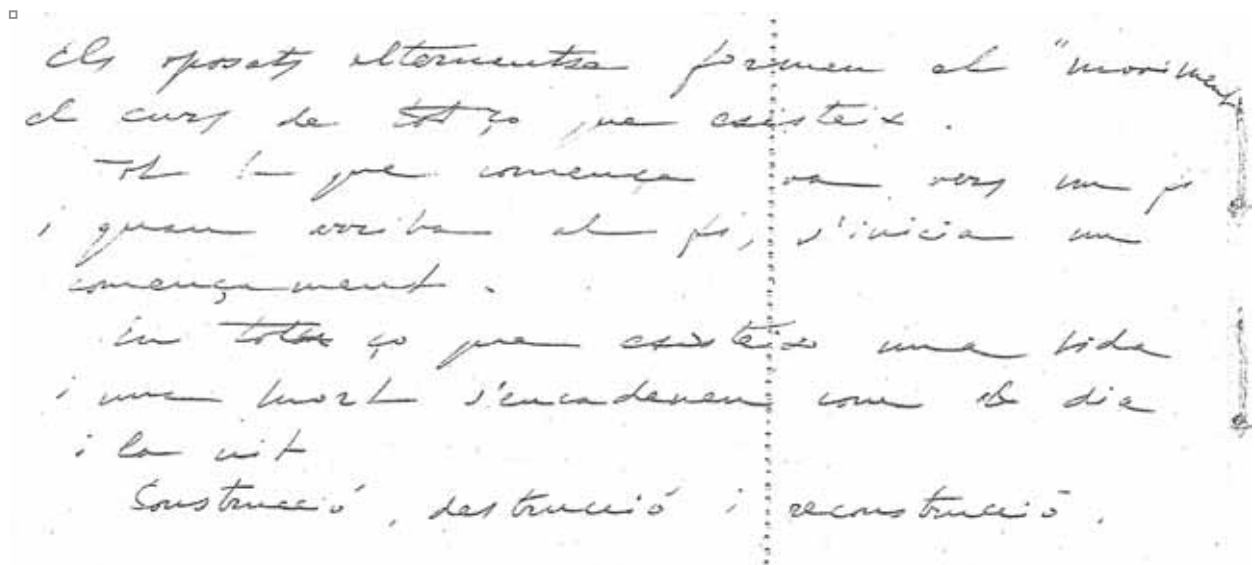 Els oposats alternantse formen el "moviment
el curs de tot ço que existeix.
Tot lo que comença va vers un fi
i quan arriba al fi, s'inicia un
començament.
En tot ço que existeix una vida
i una mort s'encadenen com el dia
i la nit
Construcció, destrucció i reconstrucció.